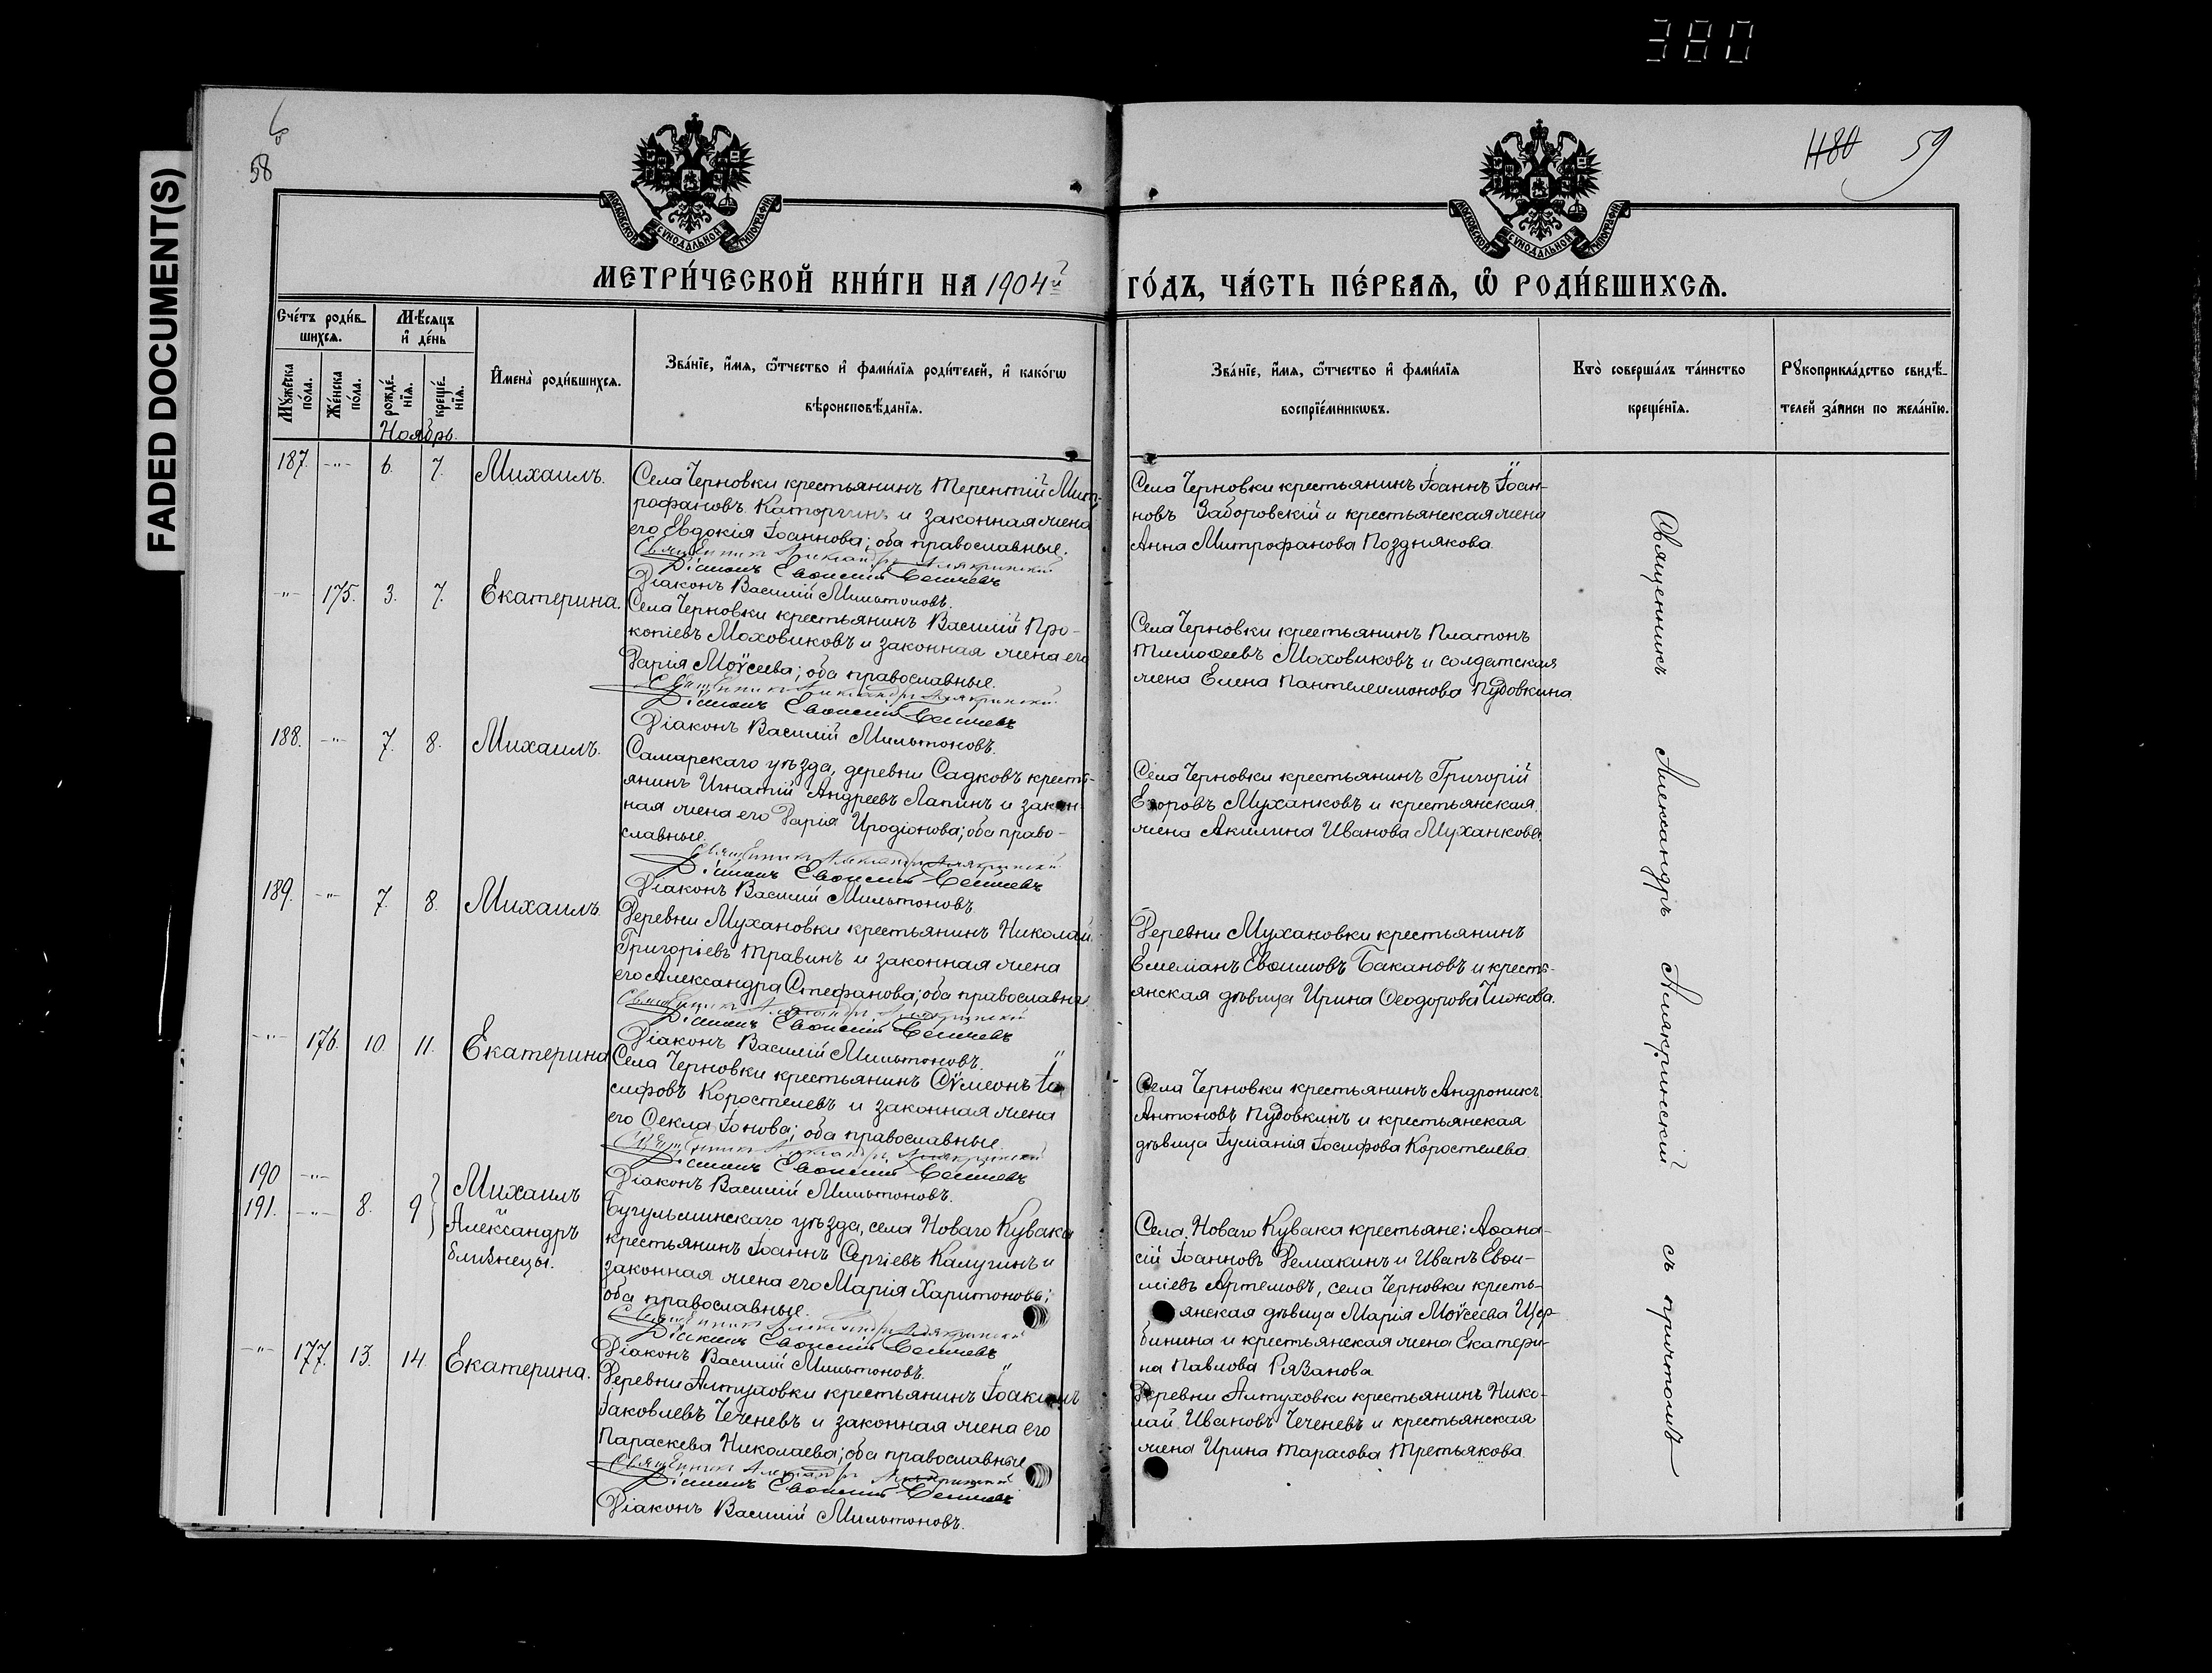 380
FADED DOCUMENT(S)
6
58
1180 59
МОСКОВСКОЙ СѴНОДАЛЬНОЙ ТИПОГРАФІИ
МОСКОВСКОЙ СѴНОДАЛЬНОЙ ТИПОГРАФІИ
МЕТРИ́ЧЕСКОЙ КНИ́ГИ НА 1904й ГО́ДЪ, ЧА́СТЬ ПЕ́РВАѦ, Ѡ҆ РОДИ́ВШИХСѦ.
Сче́тъ роди́в-
шихсѧ.
Мѣ́сѧцъ
и҆ де́нь
Мꙋ́жеска
по́ла.
Же́нска
по́ла.
рожде́-
нїѧ.
креще́-
нїѧ.
И҆мена̀ роди́вшихсѧ.
Зва́нїе, и҆́мѧ, ѻ҆́тчество и҆ фами́лїѧ роди́телей, и҆ како́гѡ
вѣроисповѣ́данїѧ.
Зва́нїе, и҆́мѧ, ѻ҆́тчество и҆ фами́лїѧ
воспрїе́мникѡвъ.
Кто̀ соверша́лъ та́инство
креще́нїѧ.
Рꙋкоприкла́дство свидѣ́-
телей за́писи по жела́нїю.
Ноябрь.
187. -"- 6. 7. Михаилъ.
Села Черновки крестьянинъ Терентій Мит-
рофановъ Каторгинъ и законная жена
его Евдокія Іоаннова; оба православные.
Священникъ Александръ Алякринскій
Діаконъ Василій Мильтоновъ.
Села Черновки крестьянинъ Іоаннъ Іоан-
новъ Заборовскій и крестьянская жена
Анна Митрофанова Позднякова.
-"- 175. 3. 7. Екатерина.
Села Черновки крестьянинъ Василій Про-
копіевъ Моховиковъ и законная жена его
Дарія Моѵсеева; оба православные.
Священникъ Александръ Алякринскій
Діаконъ Василій Мильтоновъ.
Села Черновки крестьянинъ Платонъ
Тимоѳеевъ Моховиковъ и солдатская
жена Елена Пантелеимонова Пудовкина.
188. -"- 7. 8. Михаилъ.
Самарскаго уѣзда, деревни Садковъ кресть-
янинъ Игнатій Андреевъ Лапинъ и закон-
ная жена его Дарія Иродіонова; оба право-
славные.
Священникъ Александръ Алякринскій
Діаконъ Василій Мильтоновъ.
Села Черновки крестьянинъ Григорій
Егоровъ Муханковъ и крестьянская
жена Акилина Иванова Муханкова.
189. -"- 7. 8. Михаилъ.
Деревни Мухановки крестьянинъ Николай
Григоріевъ Травинъ и законная жена
его Александра Стефанова; оба православные.
Священникъ Александръ Алякринскій
Діаконъ Василій Мильтоновъ.
Деревни Мухановки крестьянинъ
Емеліанъ Евѳимовъ Бакановъ и кресть-
янская дѣвица Ирина Ѳеодорова Чижова.
-"- 176. 10. 11. Екатерина
Села Черновки крестьянинъ Сѵмеонъ Іо-
сифовъ Коростелевъ и законная жена
его Ѳекла Іонова; оба православные.
Священникъ Александръ Алякринскій
Діаконъ Василій Мильтоновъ.
Села Черновки крестьянинъ Андроникъ
Антоновъ Пудовкинъ и крестьянская
дѣвица Іуліанія Іосифова Коростелева.
190 -"-
191. -"- 8. 9 Михаилъ
Александръ
близнецы.
Бугульминскаго уѣзда, села Новаго Кувака
крестьянинъ Іоаннъ Сергіевъ Калугинъ и
законная жена его Марія Харитонова;
оба православные.
Священникъ Александръ Алякринскій
Діаконъ Василій Мильтоновъ.
Села Новаго Кувака крестьяне: Аѳана-
сій Іоанновъ Демакинъ и Иванъ Евѳи-
міевъ Артемовъ, села Черновки кресть-
янская дѣвица Марія Моѵсеева Щер-
бинина и крестьянская жена Екатери-
на Павлова Рязанова
-"- 177. 13. 14. Екатерина.
Деревни Алтуховки крестьянинъ Іоакимъ
Іаковлевъ Чеченевъ и законная жена его
Параскева Николаева; оба православные
Священникъ Александръ Алякринскій
Діаконъ Василій Мильтоновъ.
Деревни Алтуховки крестьянинъ Нико-
лай Ивановъ Чеченевъ и крестьянская
жена Ирина Тарасова Третьякова
Священникъ Александръ Алякринскій съ причтомъ